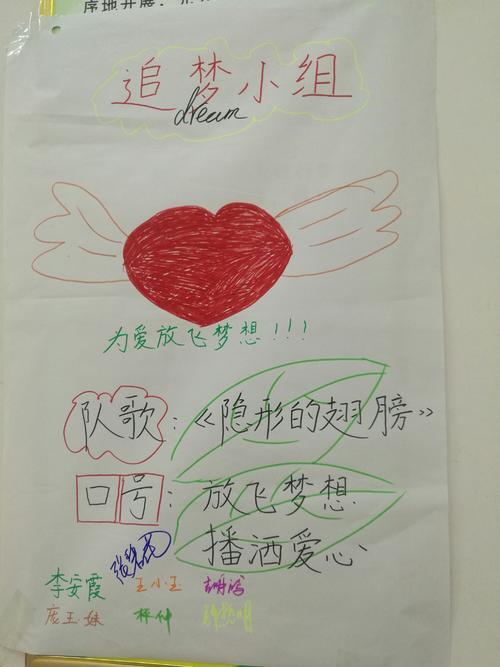 序地开展，
追梦小组
dream
为爱放飞梦想!!!
队歌：《隐形的翅膀》
口号：放飞梦想
播洒爱心
李安霞 王小玉
庞玉妹